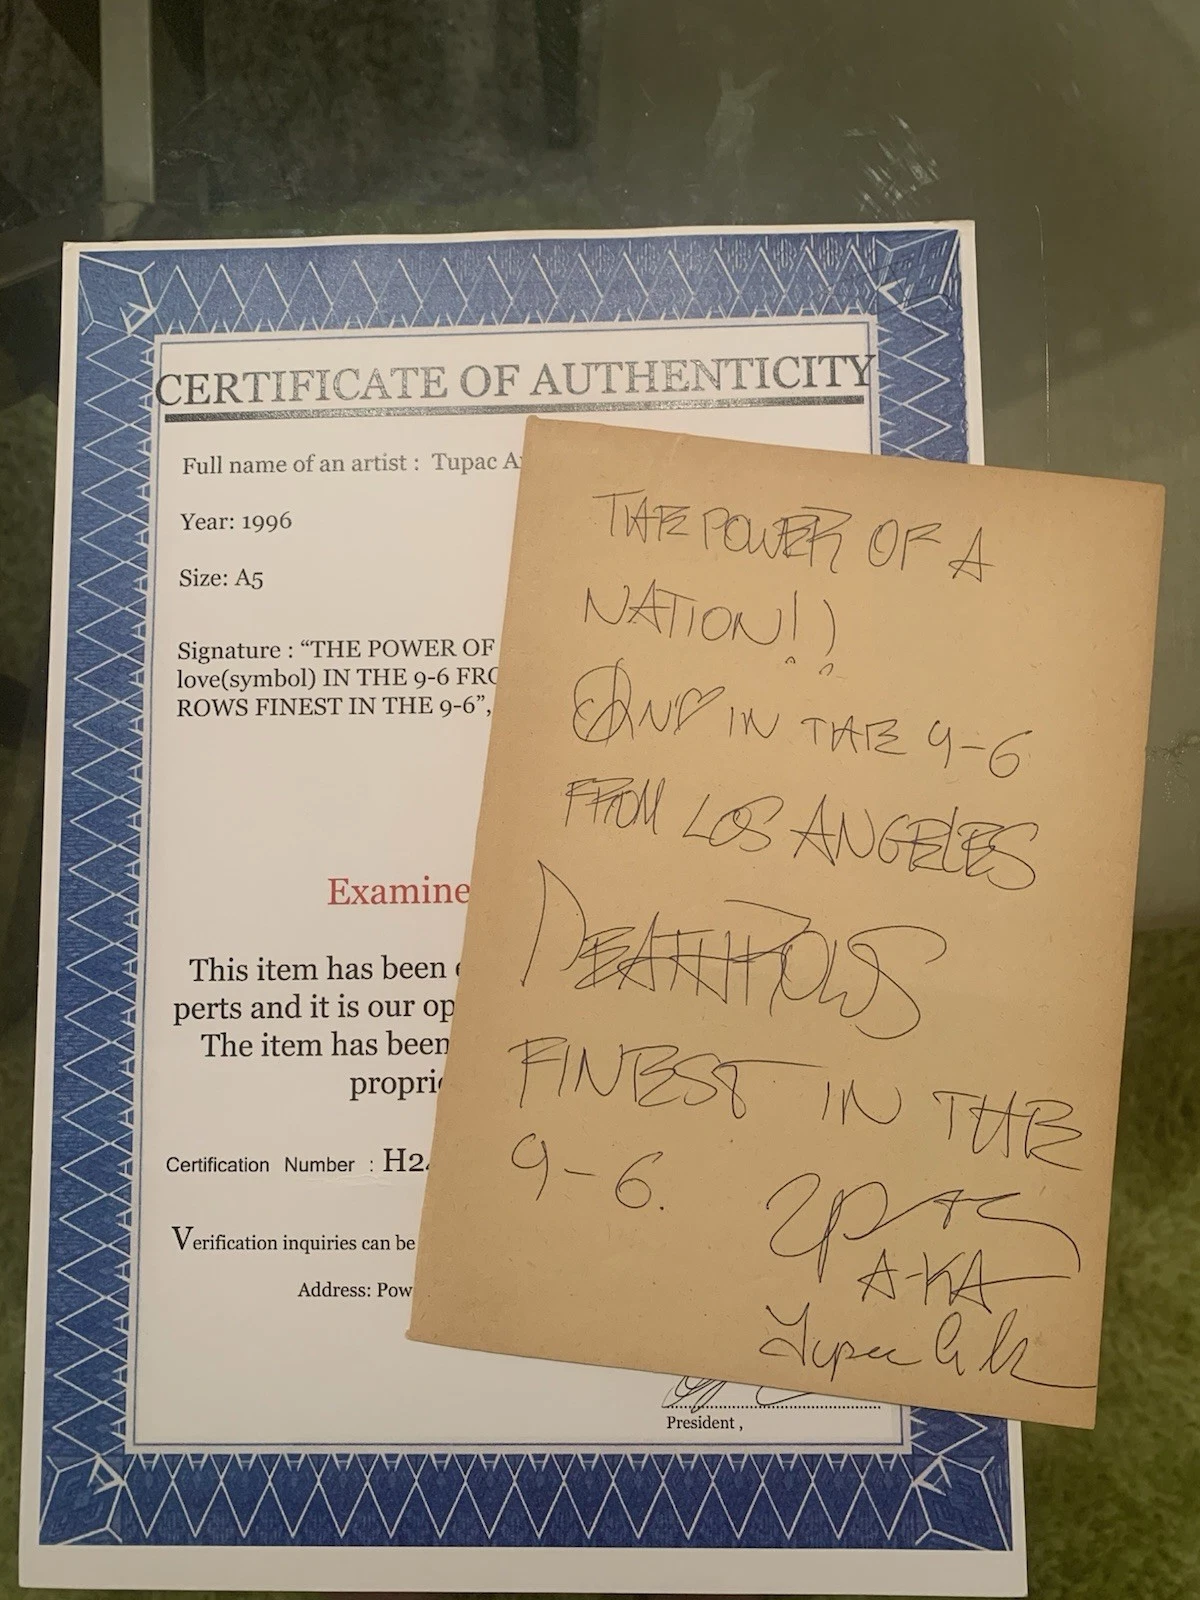 CERTIFICATE OF AUTHENTICITY
Full name of an artist : Tupac A
Year: 1996
Size: A5
Signature : “THE POWER OF
love(symbol) IN THE 9-6 FRO
ROWS FINEST IN THE 9-6”,
Examine
This item has been
perts and it is our op
The item has been
propri
Certification Number : H2
Verification inquiries can be
Address: Pow
President ,
THE POWER OF A
NATION!)
IN THE 9-6
FROM LOS ANGELES
DEATHROWS
FINEST IN THE
9-6.
2PAC
A-KA
Tupac